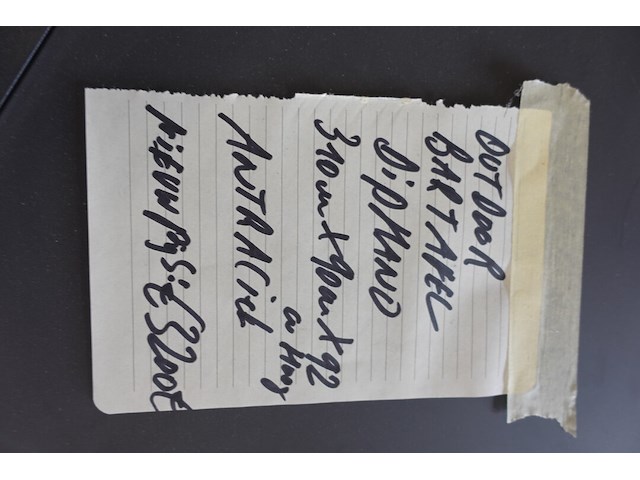 OUTDOOR
BARTAFEL
DiAMANO
310cm X 90cm X 92
cm Hoog
ANTRACiet
NiEUW PRijS: € 3200€